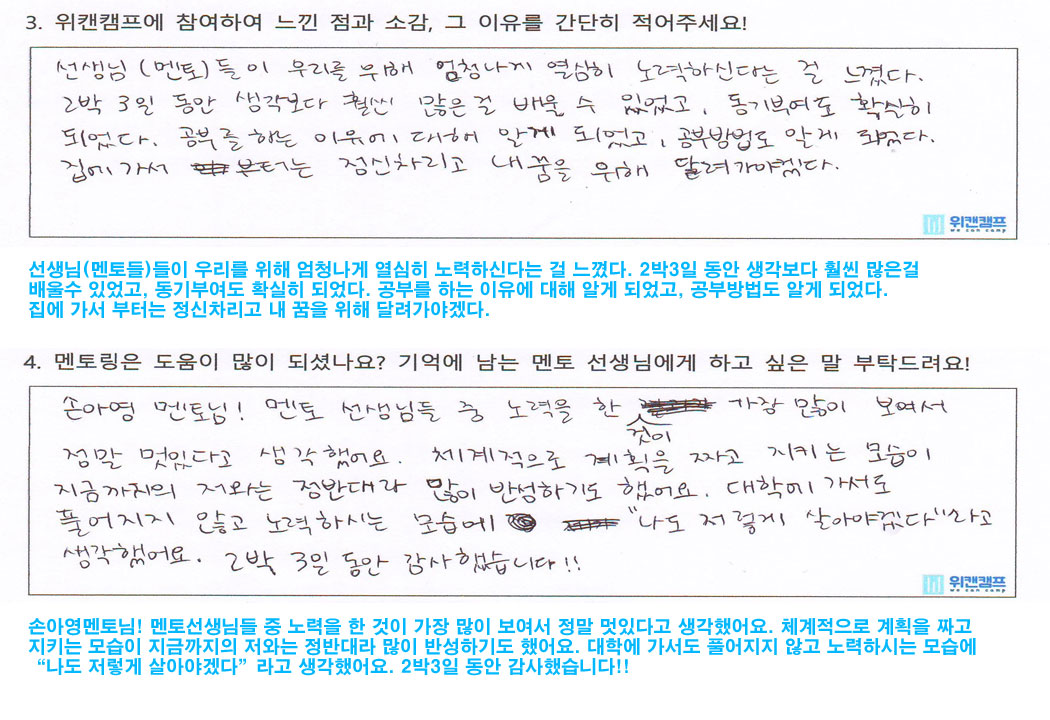 3. 위캔캠프에 참여하여 느낀 점과 소감, 그 이유를 간단히 적어주세요!
선생님 (멘토)들이 우리를 위해 엄청나게 열심히 노력하신다는 걸 느꼈다.
2박 3일 동안 생각보다 훨씬 많은 걸 배울 수 있었고, 동기부여도 확실히
되었다. 공부를 하는 이유에 대해 알게 되었고, 공부방법도 알게 되었다.
집에 가서 부터는 정신차리고 내 꿈을 위해 달려가야겠다.
위캔캠프
we can camp
선생님(멘토들)들이 우리를 위해 엄청나게 열심히 노력하신다는 걸 느꼈다. 2박3일 동안 생각보다 훨씬 많은걸
배울수 있었고, 동기부여도 확실히 되었다. 공부를 하는 이유에 대해 알게 되었고, 공부방법도 알게 되었다.
집에 가서 부터는 정신차리고 내 꿈을 위해 달려가야겠다.
4. 멘토링은 도움이 많이 되셨나요? 기억에 남는 멘토 선생님에게 하고 싶은 말 부탁드려요!
손아영 멘토님! 멘토 선생님들 중 노력을 한 것이 가장 많이 보여서
정말 멋있다고 생각했어요. 체계적으로 계획을 짜고 지키는 모습이
지금까지의 저와는 정반대라 많이 반성하기도 했어요. 대학에 가서도
풀어지지 않고 노력하시는 모습에 "나도 저렇게 살아야겠다"라고
생각했어요. 2박 3일 동안 감사했습니다!!
위캔캠프
we can camp
손아영멘토님! 멘토선생님들 중 노력을 한 것이 가장 많이 보여서 정말 멋있다고 생각했어요. 체계적으로 계획을 짜고
지키는 모습이 지금까지의 저와는 정반대라 많이 반성하기도 했어요. 대학에 가서도 풀어지지 않고 노력하시는 모습에
“나도 저렇게 살아야겠다” 라고 생각했어요. 2박3일 동안 감사했습니다!!